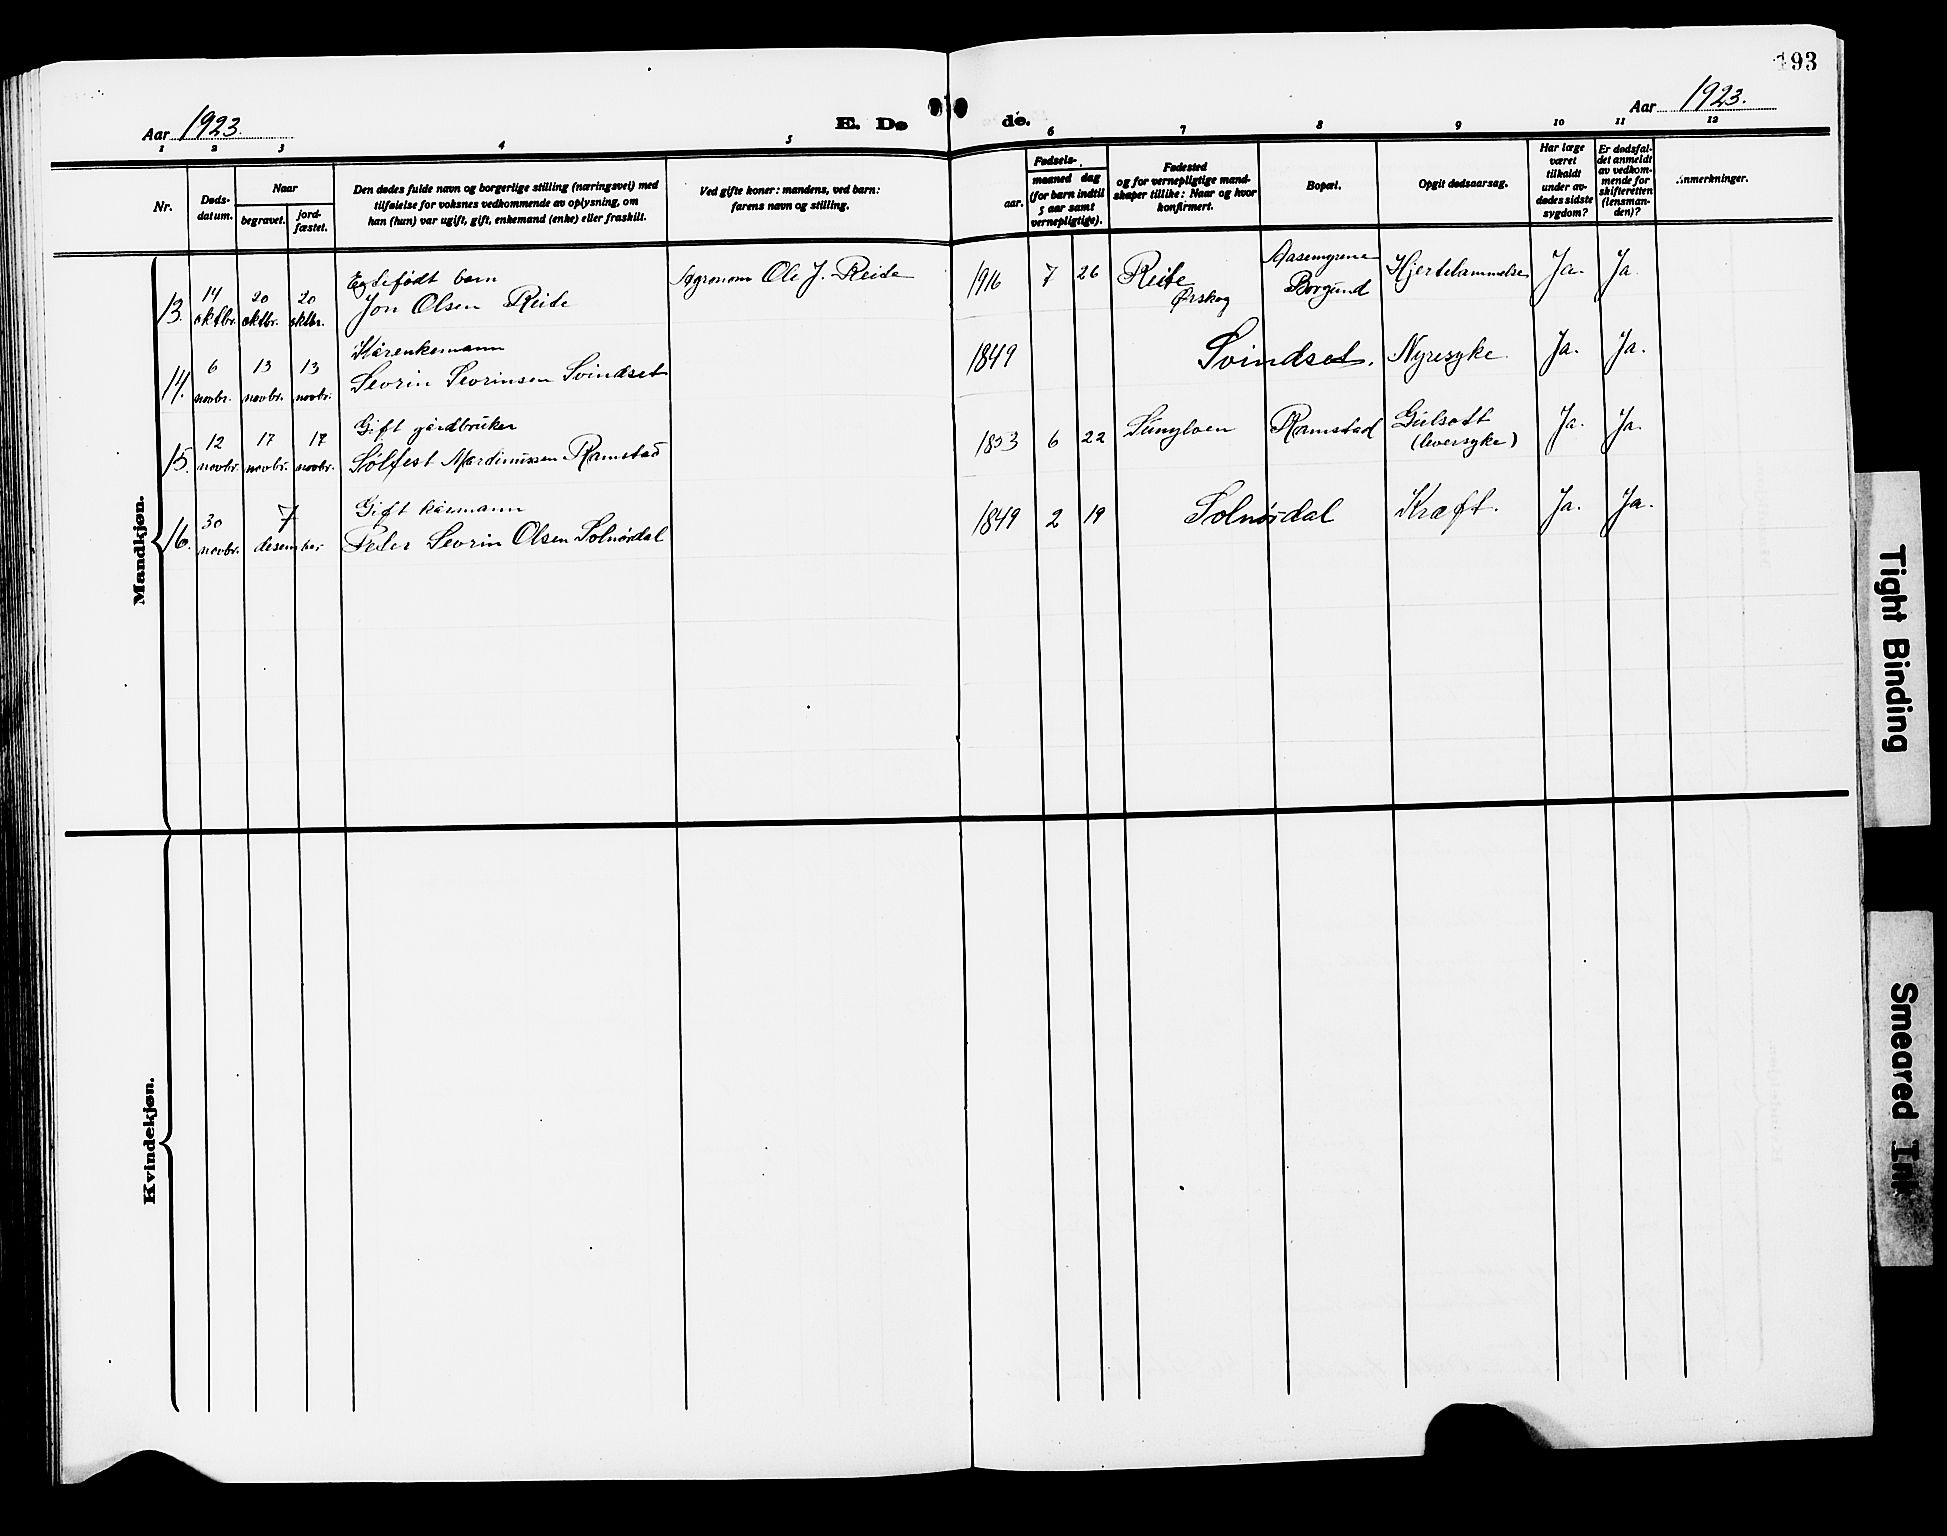 193
Aar 1923.
E. Dø
de.
Aar 1923.
1 2 3 4 5 6 7 8 9 10 11 12
Nr.
Døds-
datum.
Naar
begravet.
jord-
fæstet.
Den dødes fulde navn og borgerlige stilling (næringsvei) med
tilføielse for voksnes vedkommende av oplysning, om
han (hun) var ugift, gift, enkemand (enke) eller fraskilt.
Ved gifte koner: mandens, ved barn:
farens navn og stilling.
Fødsels-
aar.
maaned dag
(for barn indtil
5 aar samt
vernepligtige).
Fødested
og for vernepligtige mand-
skaper tillike: Naar og hvor
konfirmert.
Bopæl.
Opgit dødsaarsag.
Har læge
været
tilkaldt
under av-
dødes sidste
sygdom?
Er dødsfal-
det anmeldt
av vedkom-
mende for
skifteretten
(lensman-
den)?
Anmerkninger.
Mandkjøn.
13. 14 oktbr. 20 oktbr. 20 oktbr.
Egtefødt barn
Jon Olsen Reite
Agronom Ole J. Reite
1916 7 26
Reite
Ørskog
Aasemyrene
Borgund
Hjertelammelse Ja. Ja.
14. 6 novbr. 13 novbr. 13 novbr.
Kårenkemann
Sevrin Sevrinsen Svindset
1849 Svindset. Nyresyke. Ja. Ja.
15. 12 novbr. 17 novbr. 17 novbr.
Gift gårdbruker
Sølfest Mardinussen Ramstad
1853 6 22 Sunylven Ramstad
Gulsott
(leversyke)
Ja. Ja.
16. 30 novbr. 7 desember
Gift kårmann
Peter Sevrin Olsen Solnørdal
1849 2 19 Solnørdal Kræft. Ja. Ja.
Kvindekjøn.
Tight Binding
Smeared Ink